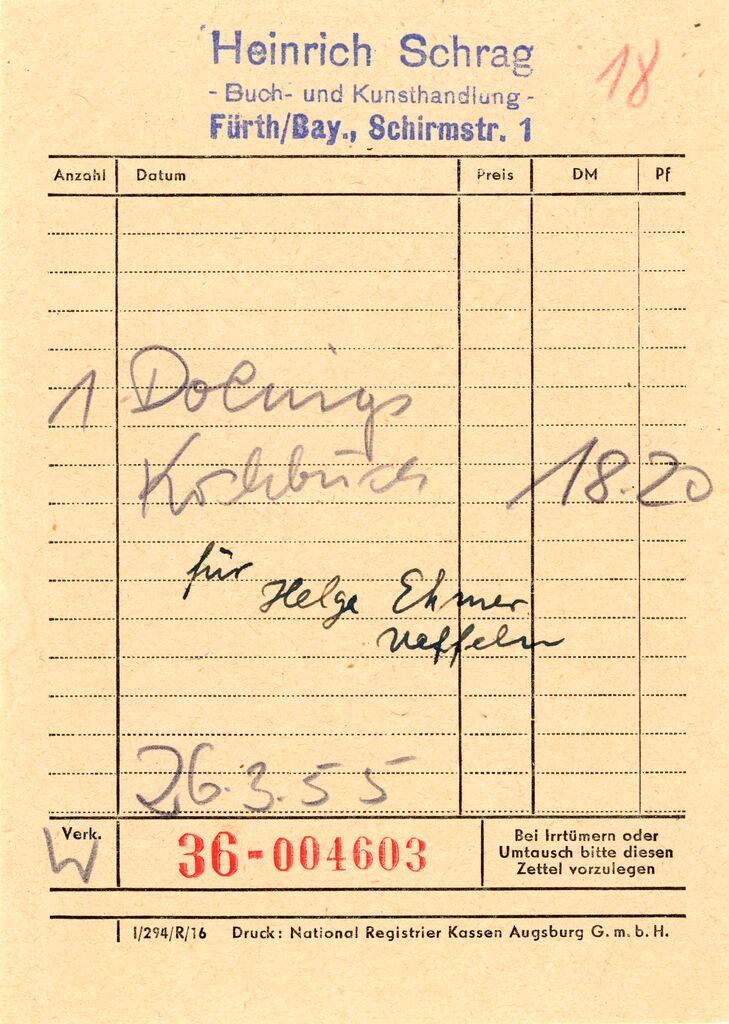 Heinrich Schrag
- Buch- und Kunsthandlung -
Fürth/Bay., Schirmstr. 1
18
Anzahl Datum Preis DM Pf
1
Kochbuch 18.20
für Helga Ehmer
26.3.55
Verk.
W
36-004603
Bei Irrtümern oder
Umtausch bitte diesen
Zettel vorzulegen
I/294/R/16 Druck: National Registrier Kassen Augsburg G.m.b.H.